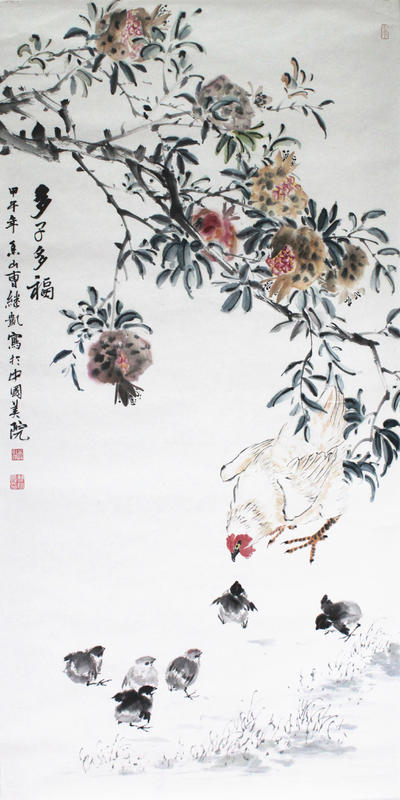 多子多福
甲午年 山曹继凯写于中国美院